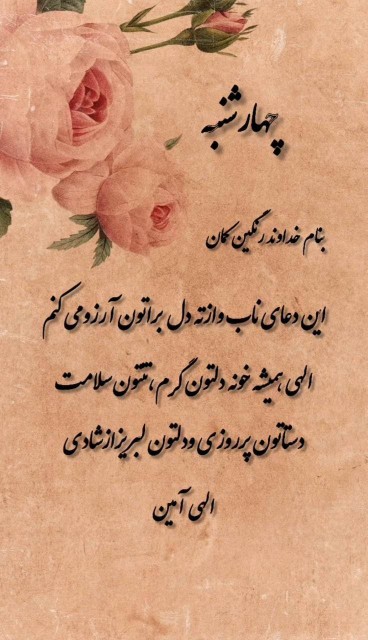 چهارشنبه
بنام خداوند رنگین کمان
این دعای ناب و از ته دل براتون آرزو می کنم
الهی همیشه خونه دلتون گرم، تنتون سلامت
دستاتون پر روزی و دلتون لبریز از شادی
الهی آمین